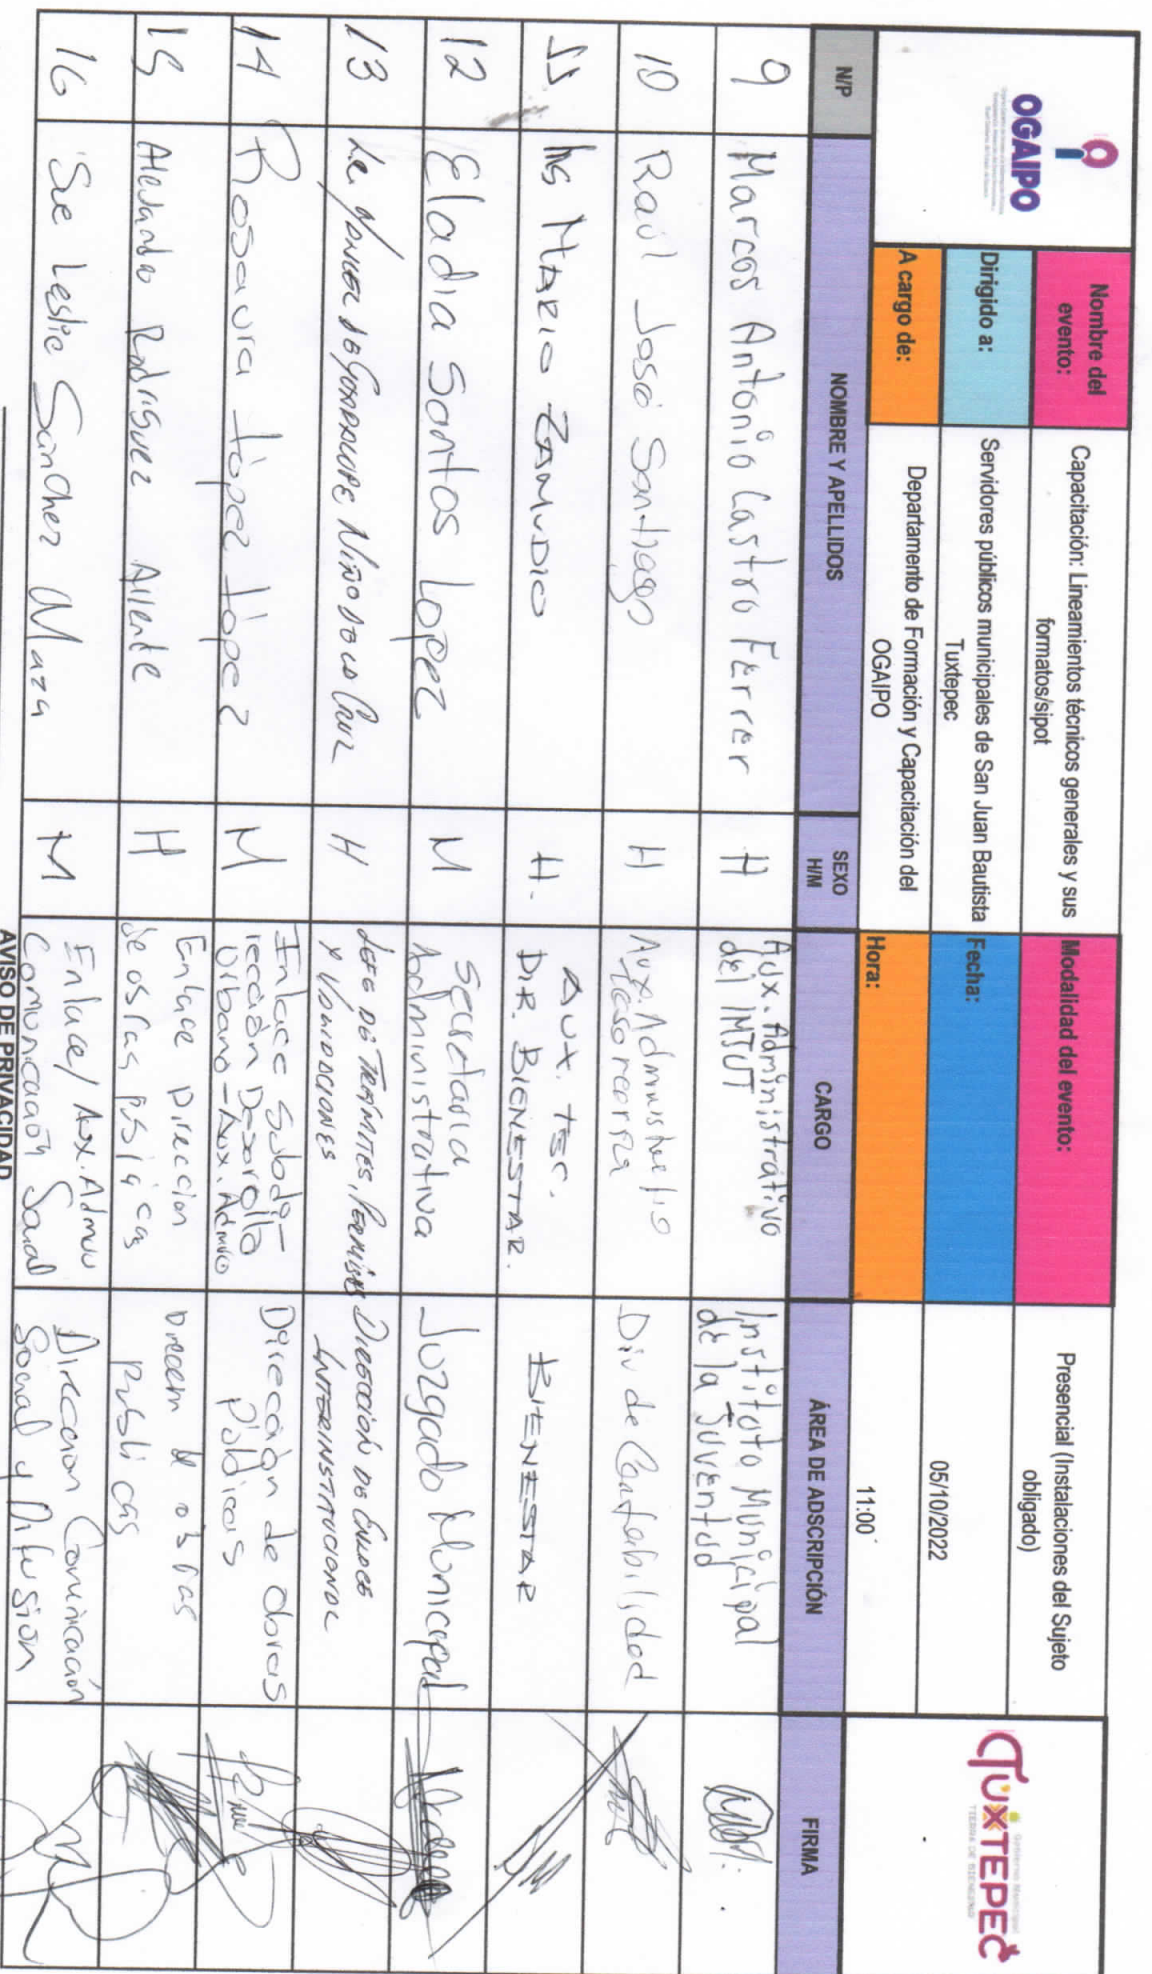 OGAIPO
Nombre del
evento:
Capacitación: Lineamientos técnicos generales y sus
formatos/sipot
Modalidad del evento:
Presencial (Instalaciones del Sujeto
obligado)
Dirigido a:
Servidores públicos municipales de San Juan Bautista
Tuxtepec
Fecha:
05/10/2022
A cargo de:
Departamento de Formación y Capacitación del
OGAIPO
Hora:
11:00
Gobierno Municipal
TUXTEPEC
TIERRA DE BIENESTAR
N/P
NOMBRE Y APELLIDOS
SEXO
H/M
CARGO
ÁREA DE ADSCRIPCIÓN
FIRMA
9
Marcos Antonio Castro Ferrer
H
Aux. Administrativo
del IMJUT
Instituto Municipal
de la Juventud
10
Raúl José Santiago
H
Aux. Administrativo
Tesorería
Div de Contabilidad
11
MARIO ZAMUDIO
H.
AUX. TEC.
DIR. BIENESTAR.
BIENESTAR
12
Eladia Santos Lopez
M
Secretaria
Administrativa
Juzgado Municipal
13
DE GUADALUPE NIÑO DE LA CRUZ
H
JEFE DE TRÁMITES, PERMISOS
Y
DIRECCIÓN DE ENLACE
INTERINSTITUCIONAL
14
Rosaura López López
M
Enlace Subdi-
rección Desarrollo
Urbano - Aux. Admvo
Dirección de obras
Públicas
15
Alejandro Rodriguez
H
Enlace Direccion
de obras públicas
de obras
publicas
16
Sue Leslie Sanchez Maza
M
Enlace/ Aux. Admvo
Comunicación Social
Direccion Comunicación
Social y Difusión
AVISO DE PRIVACIDAD